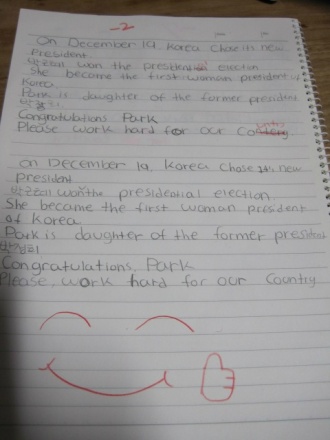 -2
On December 19, Korea Chose its new
President.
박근혜 won the presidential election
She became the first woman president of
Korea.
Park is daughter of the former president
박정희.
Congratulations Park
Please work hard for our
On December 19, Korea Chose its new
president.
박근혜 won the presidential election.
She became the first woman president
of Korea.
Park is daughter of the former president
박정희
Congratulations, Park
Please, work hard for our Country